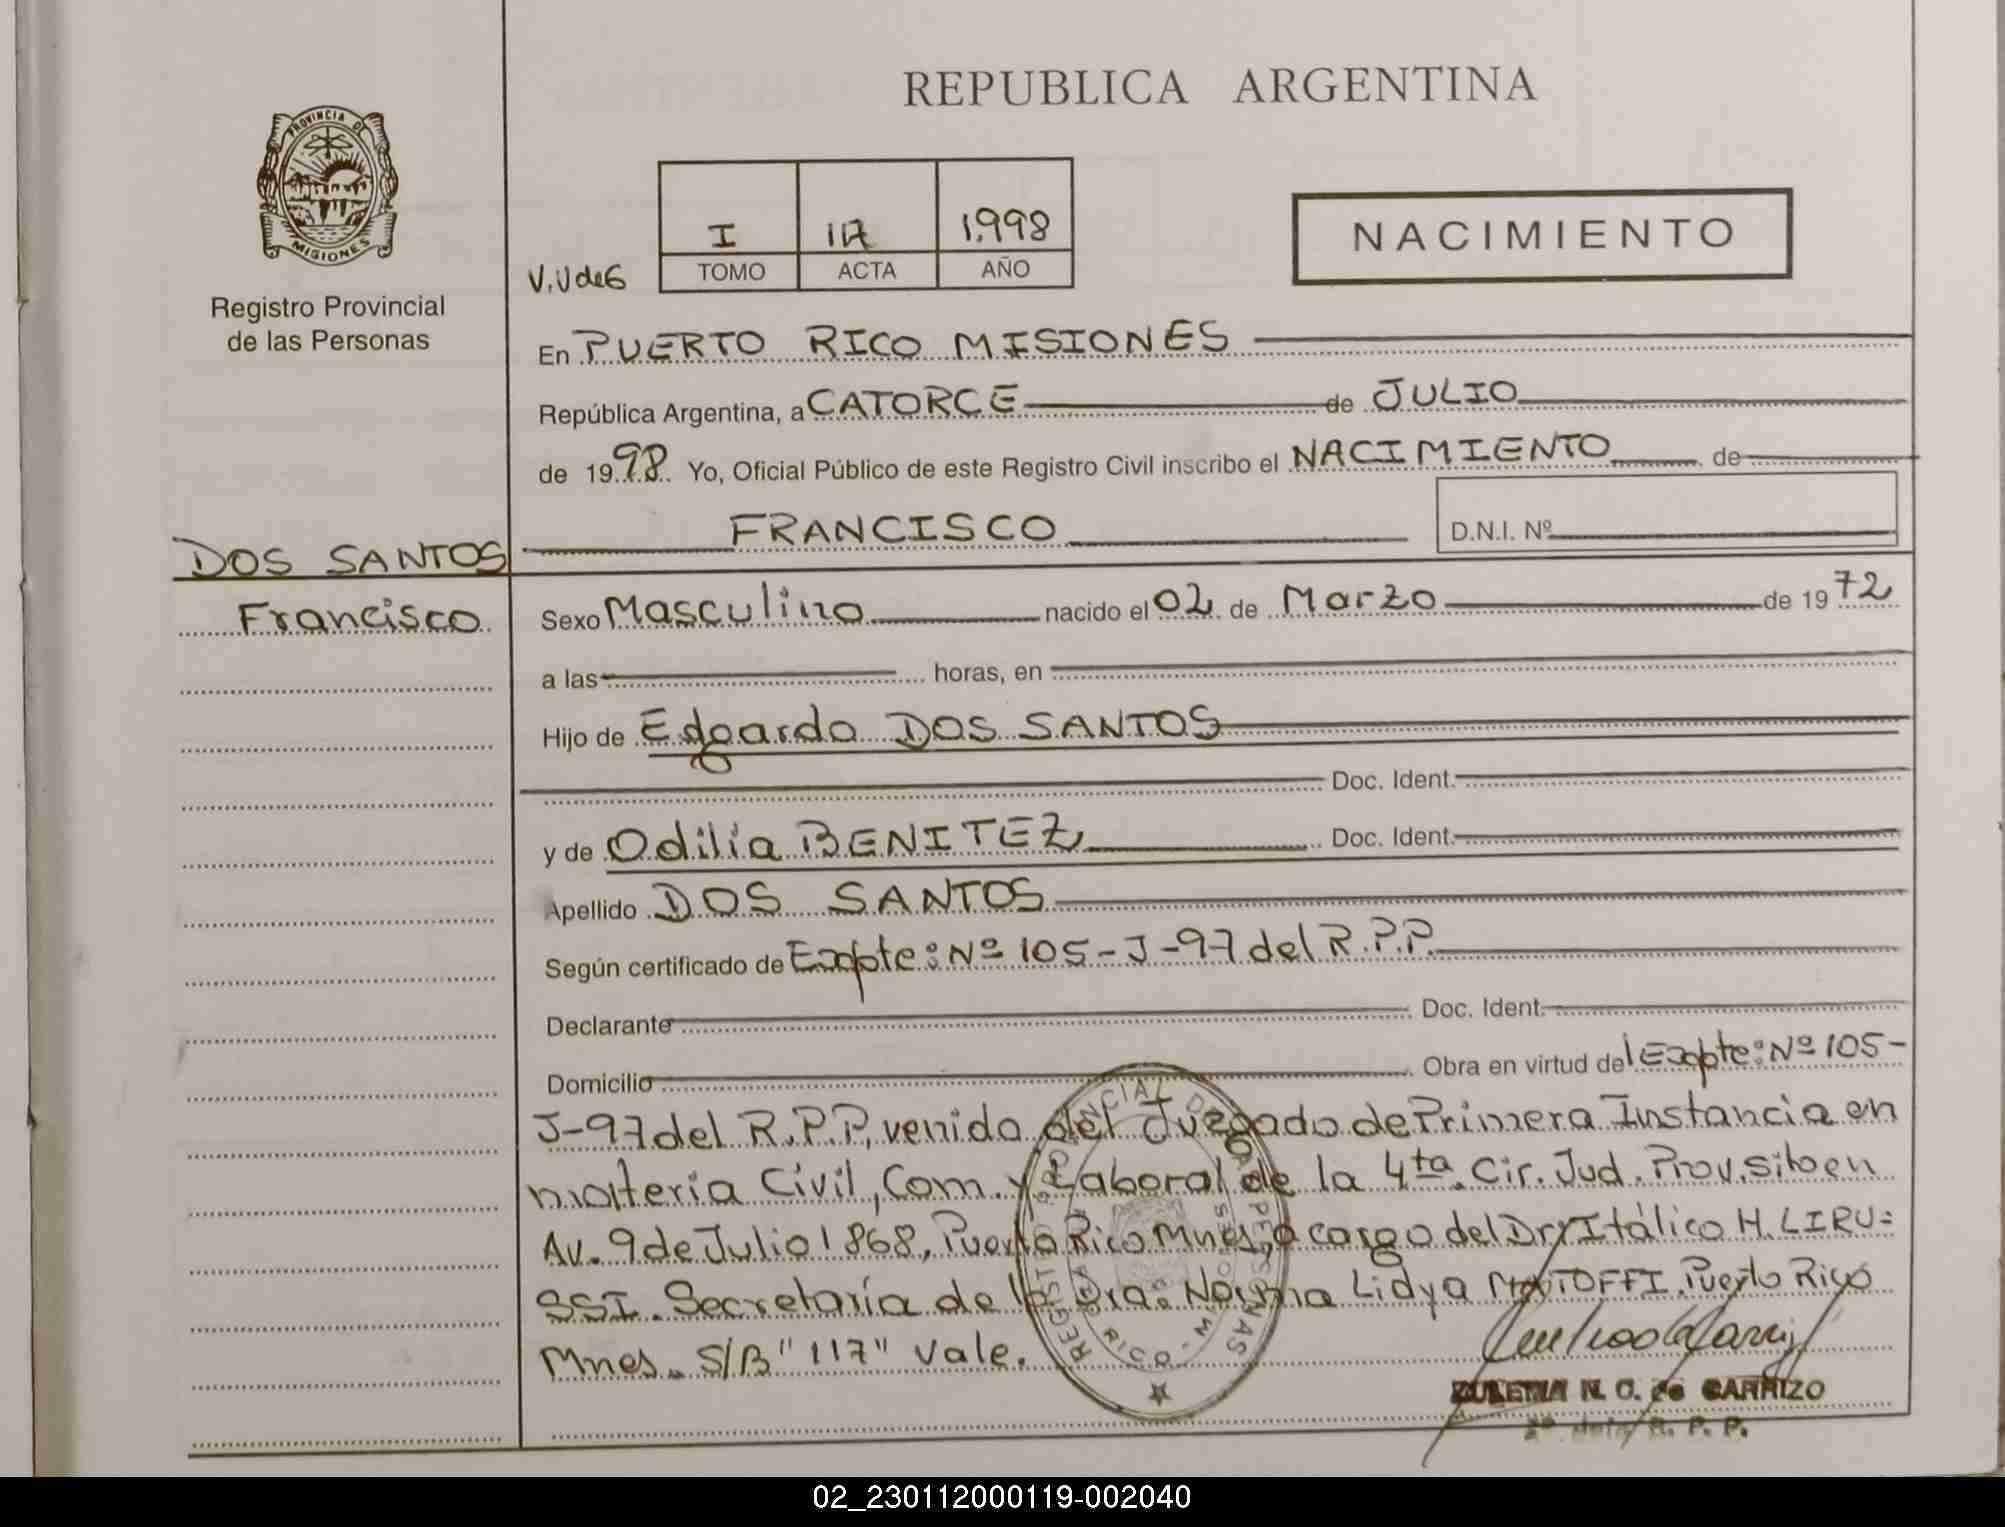 REPUBLICA ARGENTINA
PROVINCIA DE
MISIONES
Registro Provincial
de las Personas
I 117 1.998
TOMO ACTA AÑO
NACIMIENTO
En PUERTO RICO MISIONES
República Argentina, a CATORCE de JULIO
de 1998 Yo, Oficial Público de este Registro Civil inscribo el NACIMIENTO de
FRANCISCO
D.N.I. Nº
DOS SANTOS
Francisco
Sexo Masculino nacido el 02 de Marzo de 1972
a las horas, en
Hijo de Edgardo DOS SANTOS
Doc. Ident.
y de Odilia BENITEZ Doc. Ident.
Apellido DOS SANTOS
Según certificado de Expte: Nº 105-J-97 del R.P.P.
Declarante Doc. Ident.
Domicilio Obra en virtud del Expte: Nº 105-
J-97 del R.P.P, venido del Juzgado de Primera Instancia en
materia Civil, Com. y Laboral de la 4ta. Cir. Jud. Prov. sito en
Av. 9 de Julio 1868, Puerto Rico Mnes, a cargo del Dr. Itálico H. LIRU=
SSI. Secretaría de la Dra. Norma Lidya Puerto Rico
Mnes. S/B "117" Vale.
REGISTRO PROVINCIAL DE LAS PERSONAS
RICO
N. C. de CARRIZO
R. P. P.
02_230112000119-002040